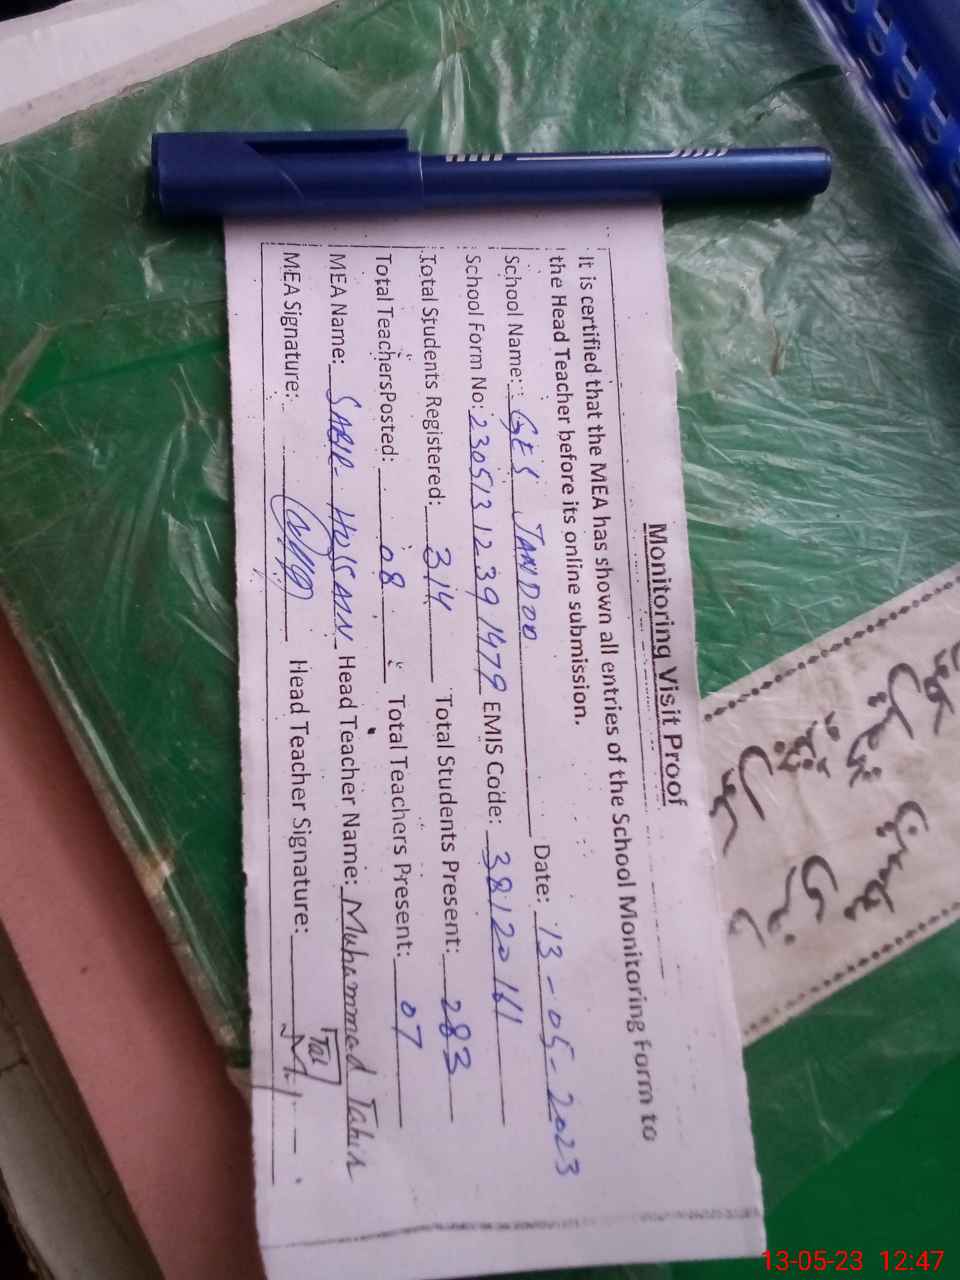 Monitoring Visit Proof
It is certified that the MEA has shown all entries of the School Monitoring Form to
the Head Teacher before its online submission.
School Name: GES JANDOO Date: 13-05-2023
School Form No: 23051312391479 EMIS Code: 38120161
Total Students Registered: 314 Total Students Present: 283
Total TeachersPosted: 08 Total Teachers Present: 07
MEA Name: SABIR HUSSAIN Head Teacher Name: Muhammad Tahir
MEA Signature: Head Teacher Signature:
13-05-23 12:47